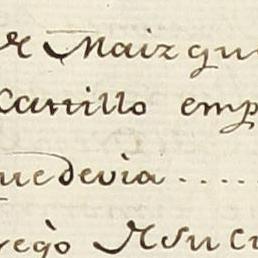 Maiz qu
Carrillo emp
que devia ....
regò